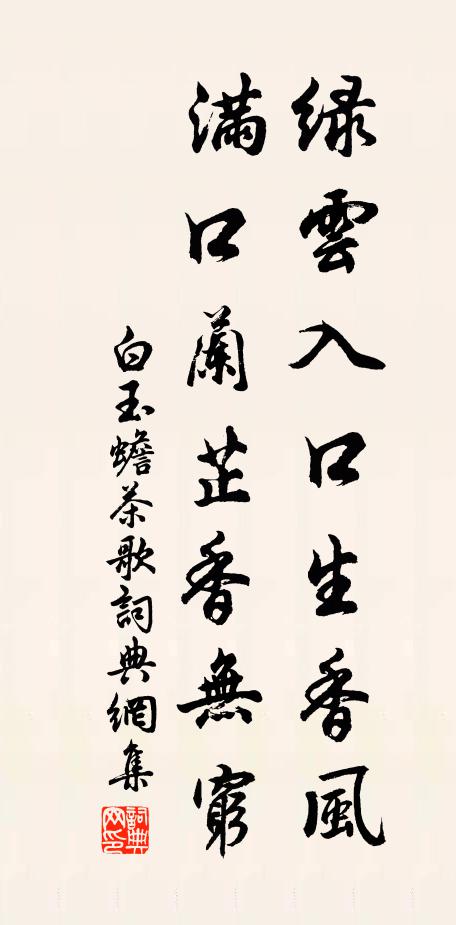 綠雲入口生香風
滿口蘭芷香無窮
白玉蟾茶歌詞典網集
詞典网印